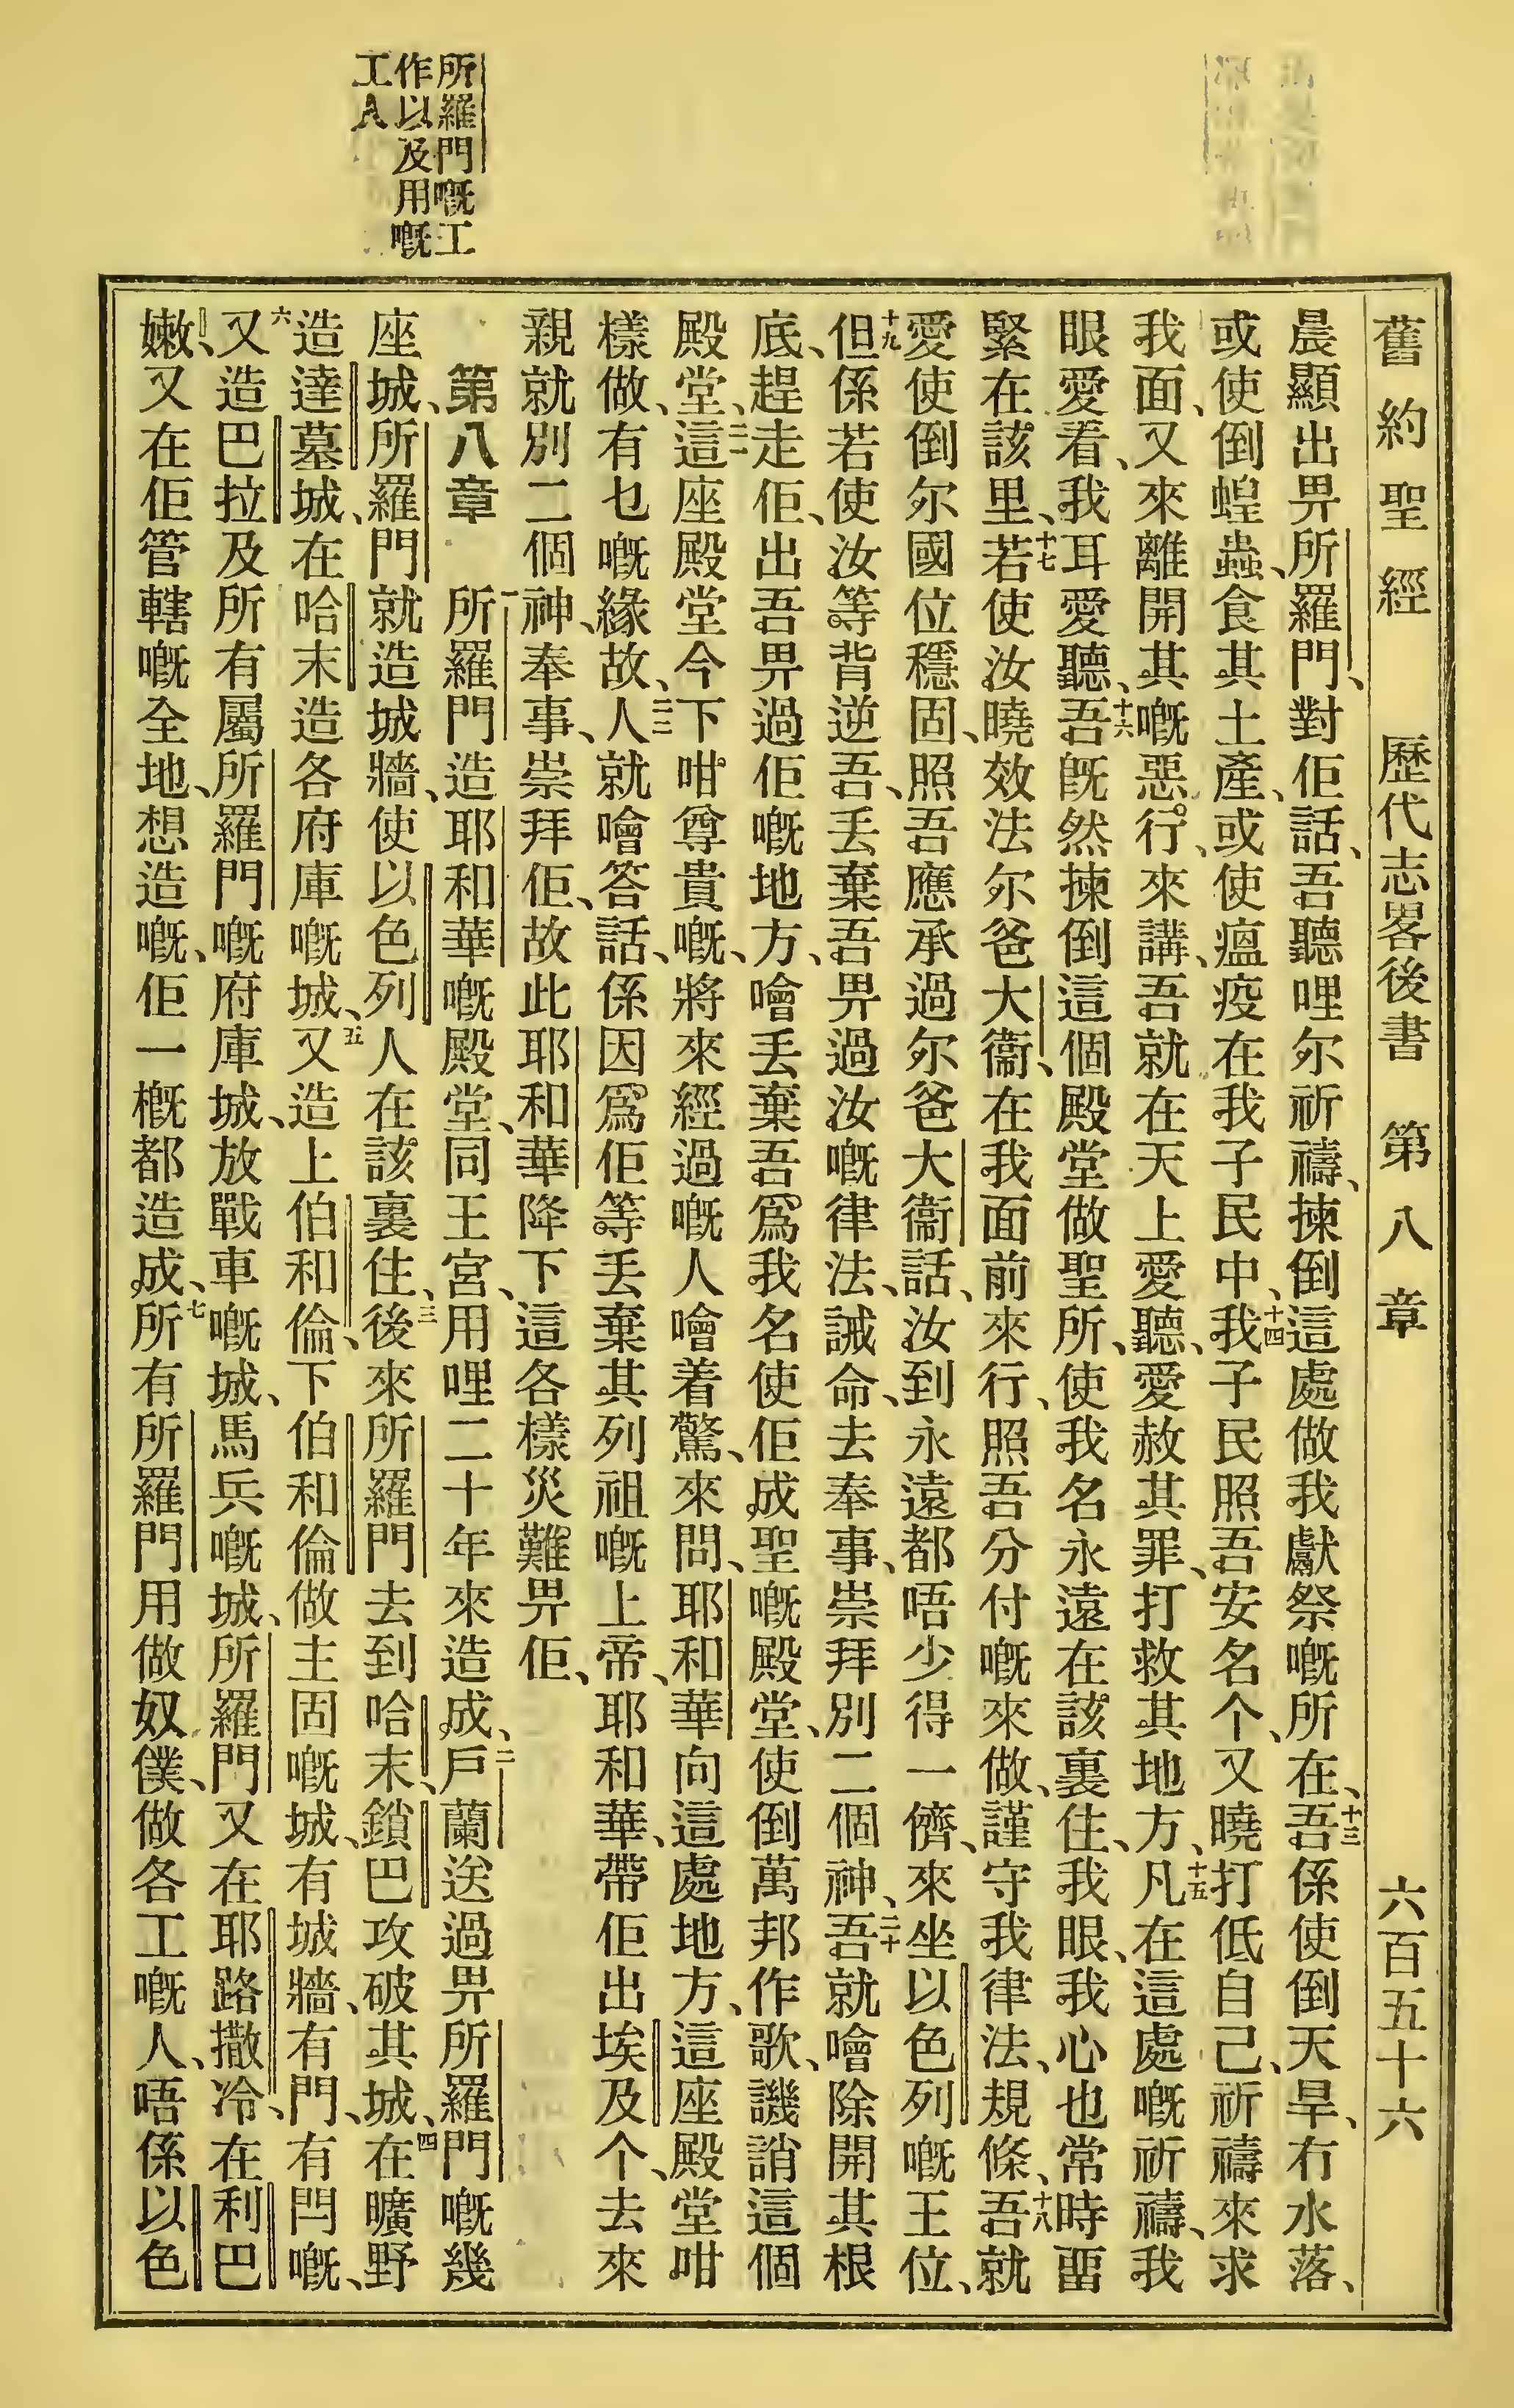 舊約聖經 歷代志畧後書 第八章 六百五十六
晨顯出畀所羅門、對佢話、吾聽哩尔祈禱、揀倒這處做我獻祭嘅所在、十三吾係使倒天旱、冇水落、
或使倒蝗蟲、食其土產、或使瘟疫在我子民中、十四我子民照吾安名个、又曉打低自己、祈禱來求
我面、又來離開其嘅惡行、來講、吾就在天上愛聽、愛赦其罪、打救其地方、十五凡在這處嘅祈禱、我
眼愛看、我耳愛聽、十六吾旣然揀倒這個殿堂做聖所、使我名永遠在該裏住、我眼、我心也常時畱
緊在該里、十七若使汝曉效法尔爸大衞、在我面前來行、照吾分付嘅來做、謹守我律法、規條、十八吾就
愛使倒尔國位穩固、照吾應承過尔爸大衞話、汝到永遠都唔少得一儕、來坐以色列嘅王位、
十九但係若使汝等背逆吾、丢棄吾畀過汝嘅律法、誡命、去奉事、崇拜別二個神、二十吾就噲除開其根
底、趕走佢、出吾畀過佢嘅地方、噲丢棄吾爲我名使佢成聖嘅殿堂、使倒萬邦作歌、譏誚這個
殿堂、二一這座殿堂今下咁尊貴嘅、將來經過嘅人噲着驚、來問、耶和華向這處地方、這座殿堂咁
樣做、有乜嘅緣故、二二人就噲答話、係因爲佢等丢棄其列祖嘅上帝、耶和華、帶佢出埃及个、去來
親就別二個神、奉事、崇拜佢、故此耶和華降下這各樣災難畀佢、
所羅門嘅工
作以及用嘅
工人
第八章 一所羅門造耶和華嘅殿堂、同王宮、用哩二十年來造成、二戶蘭送過畀所羅門嘅幾
座城、所羅門就造城牆、使以色列人在該裏住、三後來所羅門去到哈末、鎖巴攻破其城、四在曠野
造達墓城、在哈末造各府庫嘅城、五又造上伯和倫、下伯和倫做主固嘅城、有城牆、有門、有閂嘅、
六又造巴拉及所有屬所羅門嘅府庫城、放戰車嘅城、馬兵嘅城、所羅門又在耶路撒冷、在利巴
嫩、又在佢管轄嘅全地、想造嘅、佢一概都造成、七所有所羅門用做奴僕、做各工嘅人、唔係以色